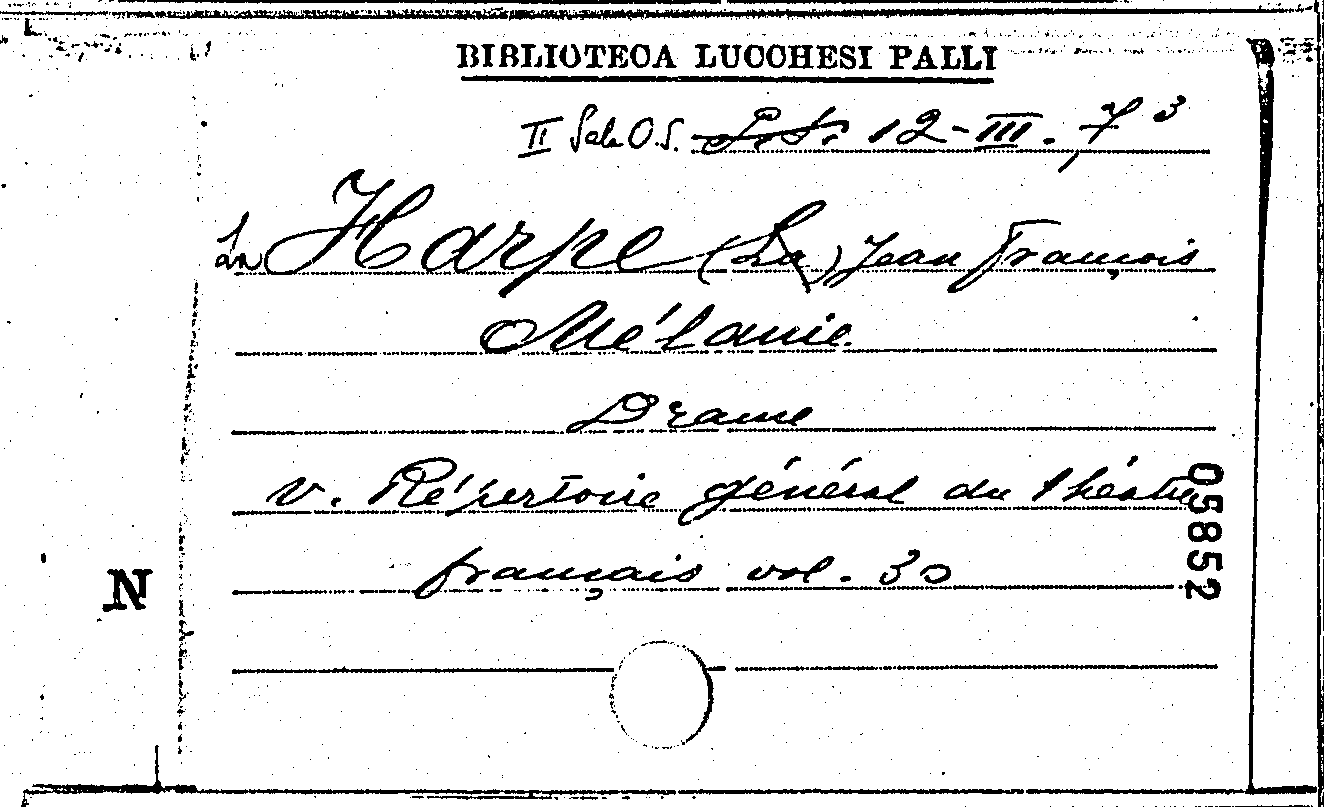 BIBLIOTECA LUCCHESI PALLI
II Sala O.S. 12-III. 7³
La Harpe (La) Jean François
Mélanie
Drame
v. Répertoire général du théâtre
français vol. 30
05852
N